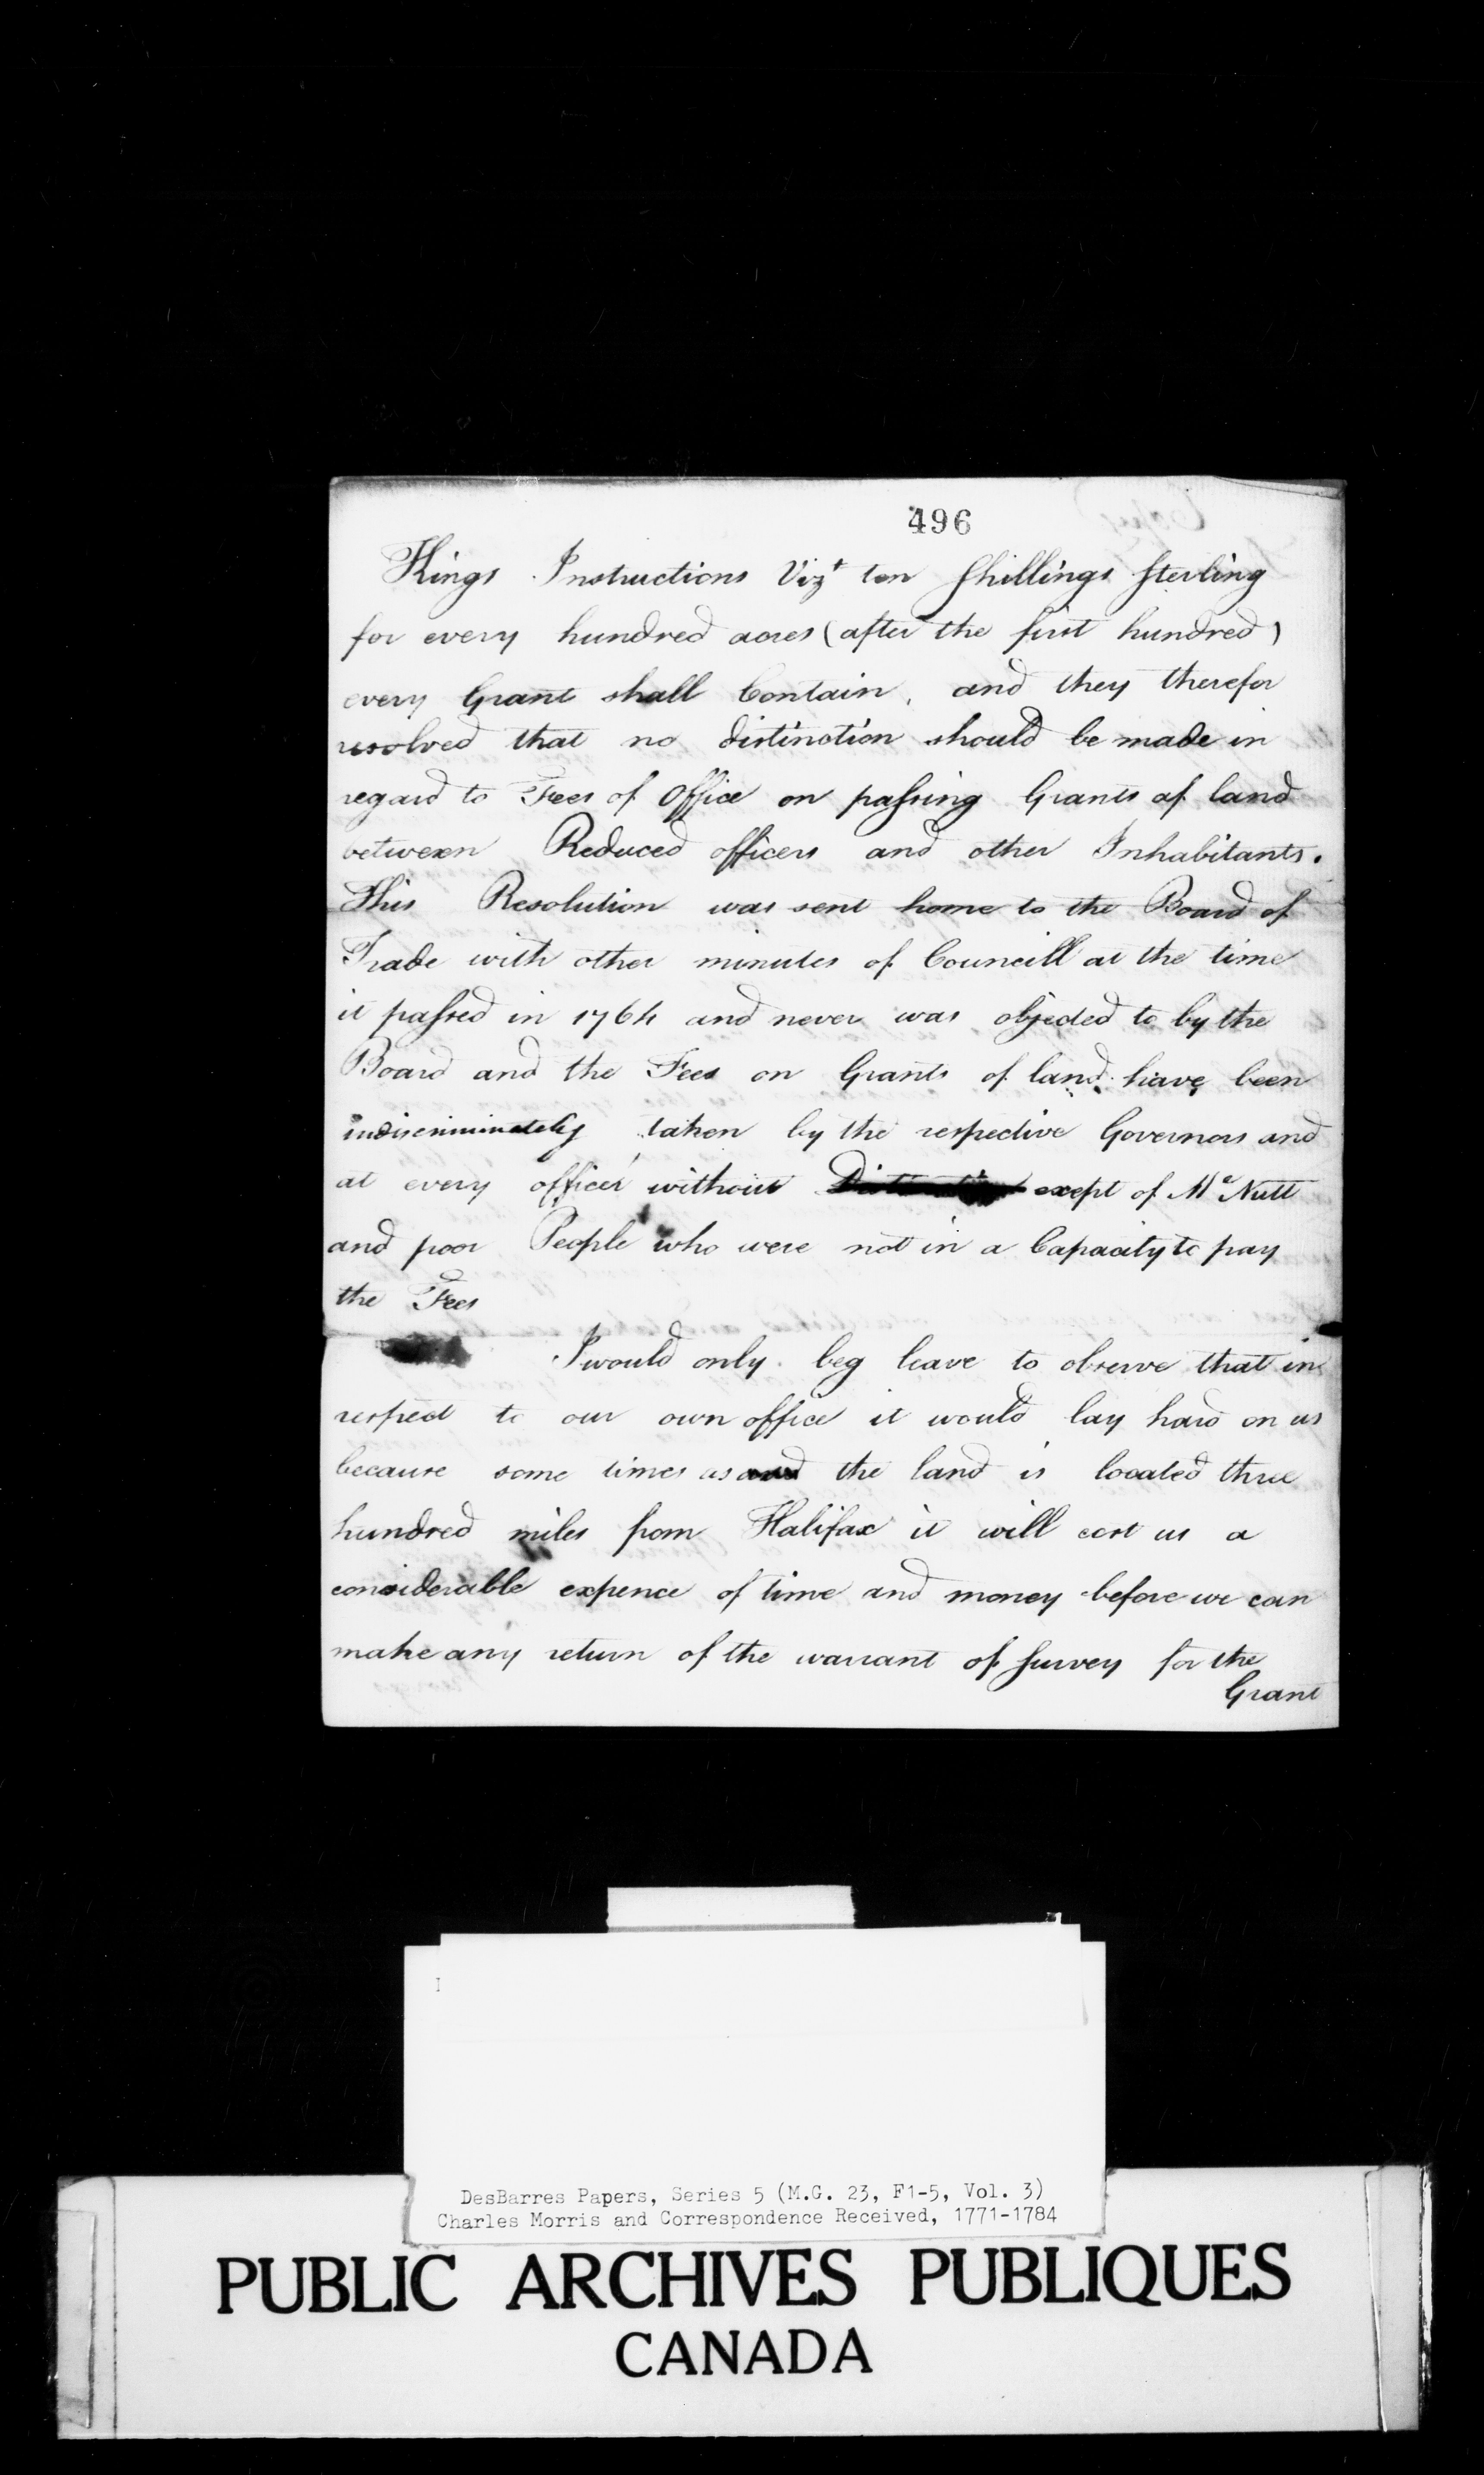 496
Kings Instructions Vizt ten Shillings Sterling
for every hundred acres (after the first hundred)
every Grant shall Contain, and they therefor
resolved that no distinction should be made in
regard to Fees of Office on passing Grants of land
between Reduced officers and other Inhabitants.
This Resolution was sent home to the Board of
Trade with other minutes of Councill at the time
it passed in 1764 and never was objected to by the
Board and the Fees on Grants of land have been
indiscriminately taken by the respective Governors and
at every officer without exept of Mc Nutt
and poor People who were not in a Capacity to pay
the Fees
I would only beg leave to observe that in
respect to our own office it would lay hard on us
because some times as the land is located three
hundred miles from Halifax it will cost us a
considerable expence of time and money before we can
make any return of the warrant of Survey for the
Grant
DesBarres Papers, Series 5 (M.G. 23, F1-5, Vol. 3)
Charles Morris and Correspondence Received, 1771-1784
PUBLIC ARCHIVES PUBLIQUES
CANADA